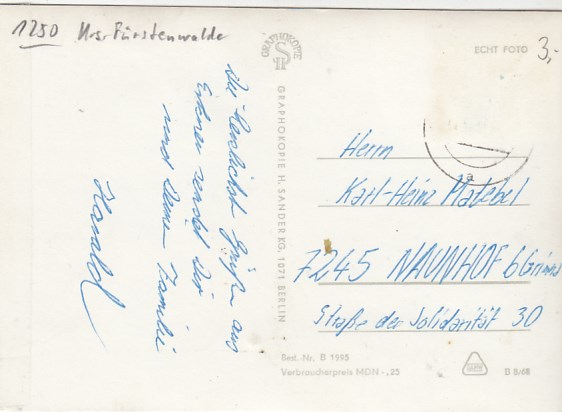 1250 Krs. Fürstenwalde
3,-
ECHT FOTO
GRAPHOKOPIE
Die herzlichsten Grüße aus
Erkner sendet Dir
und Deiner Familie
Harald
GRAPHOKOPIE H. SANDER KG. 1071 BERLIN
1a
Herrn
Karl-Heinz Matebel
7245 NAUNHOF b Grimma
Straße der Solidarität 30
Best.-Nr. B 1995
Verbraucherpreis MDN -,25
B 8/68